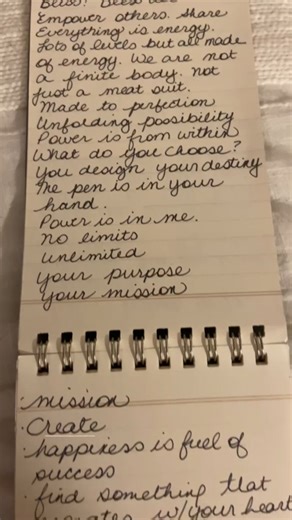 Bliss! Bliss
Empower others. Share
Everything is energy.
Lots of levels but all made
of energy. We are not
a finite body. not
just a meat suit.
Made to perfection
Unfolding possibility
Power is from within
What do you choose?
You design your destiny
The pen is in your
hand.
Power is in me.
no limits
unlimited
your purpose
your mission
· mission
· Create
· happiness is fuel of
success
· find something that
w/your heart